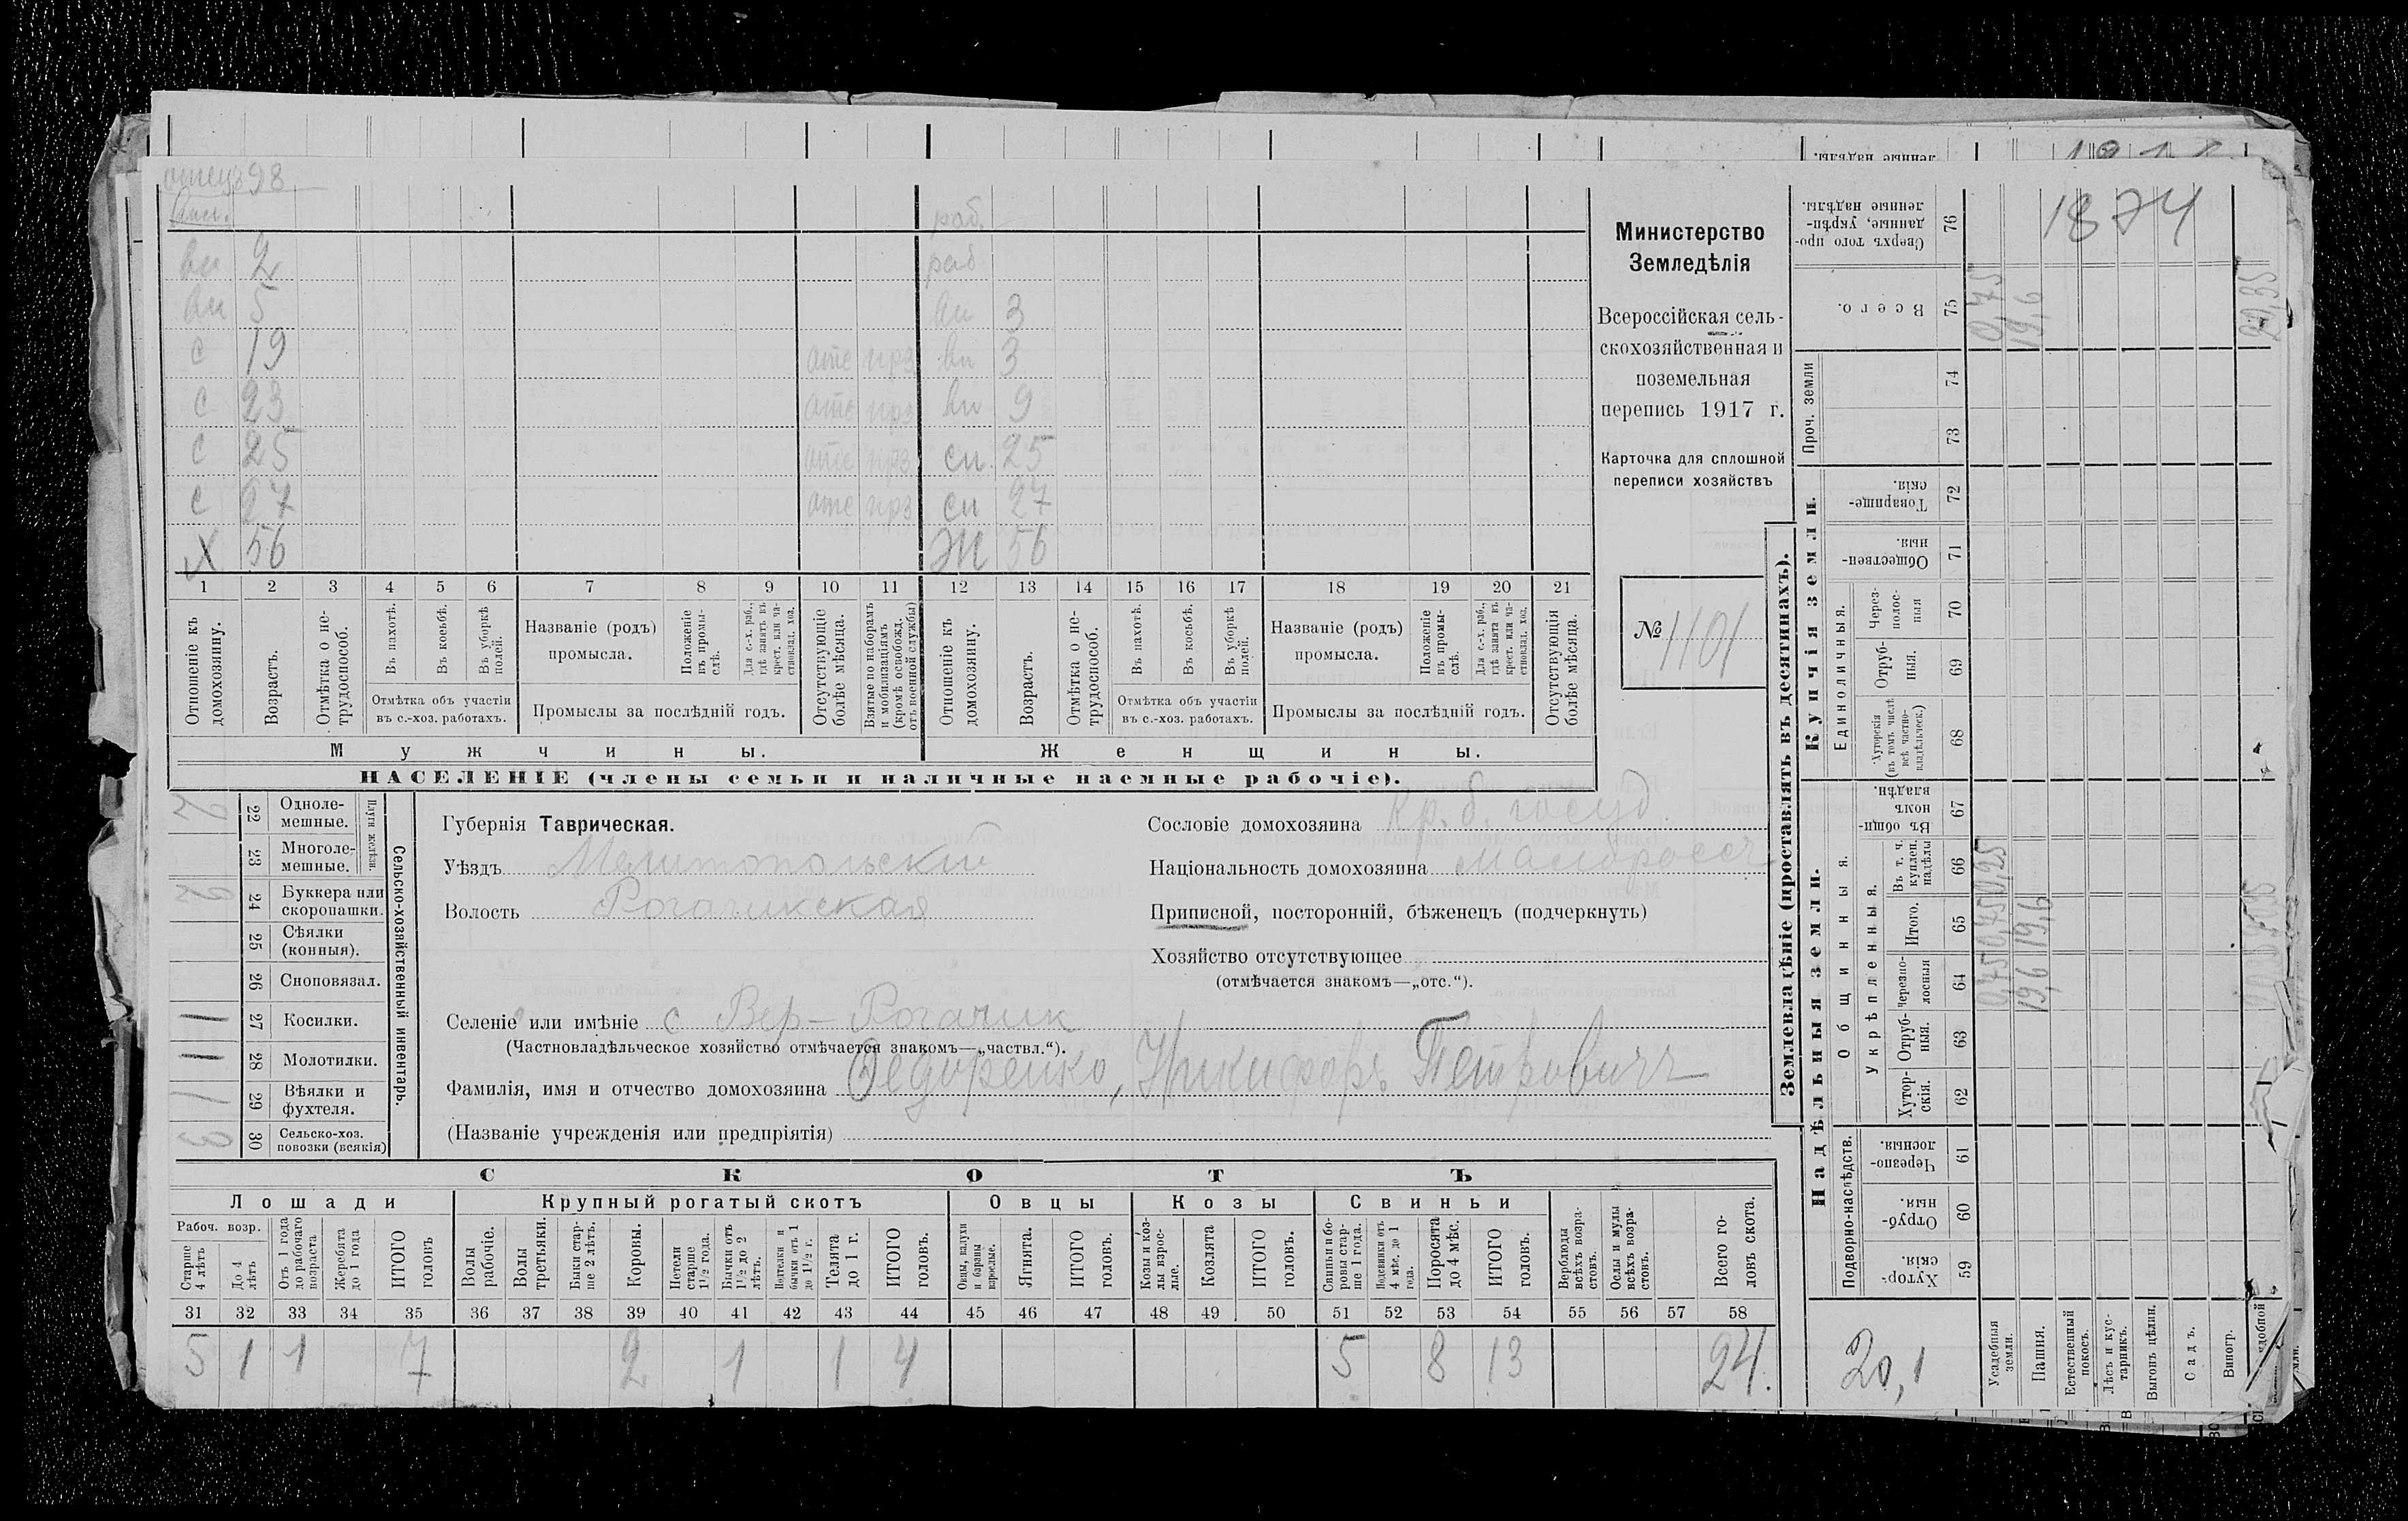 отец 98
раб.
вн 2 раб
вн 5 вн 3
с 19 отс прз вн 3
с 23 отс прз вн 9
с 25 отс прз сн. 25
с 27 отс прз сн 27
Х 56 Ж 56
1 2 3 4 5 6 7 8 9 10 11 12 13 14 15 16 17 18 19 20 21
Отношеніе къ домохозяину.
Возрастъ.
Отмѣтка о не-трудоспособ.
Въ пахотѣ.
Въ косьбѣ.
Въ уборкѣ полей.
Отмѣтка объ участіи
въ с.-хоз. работахъ.
Названіе (родъ)
промысла.
Положеніе въ промы-слѣ.
Для с.-х. раб., гдѣ занятъ въ крест. или ча-стновлад. хоз.
Промыслы за послѣдній годъ.
Отсутствующіе болѣе мѣсяца.
Взятые по наборамъ и мобилизаціямъ (кромѣ освобожд. отъ военной службы)
Отношеніе къ домохозяину.
Возрастъ.
Отмѣтка о не-трудоспособ.
Въ пахотѣ.
Въ косьбѣ.
Въ уборкѣ полей.
Отмѣтка объ участіи
въ с.-хоз. работахъ.
Названіе (родъ)
промысла.
Положеніе въ промы-слѣ.
Для с.-х. раб., гдѣ занята въ крест. или ча-стновлад. хоз.
Промыслы за послѣдній годъ.
Отсутствующія болѣе мѣсяца.
Мужчины. Женщины.
НАСЕЛЕНІЕ (члены семьи и наличные наемные рабочіе).
Министерство
Земледѣлія
Всероссійская сель-
скохозяйственная и
поземельная
перепись 1917 г.
Карточка для сплошной
переписи хозяйствъ
№ 1101
Сельско-хозяйственный инвентарь.
Плуги желѣзн.
2 22 Одноле-мешные.
23 Многоле-мешные.
2 24 Буккера или скоропашки.
25 Сѣялки (конныя).
26 Сноповязал.
1 27 Косилки.
1 28 Молотилки.
1 29 Вѣялки и фухтеля.
3 30 Сельско-хоз. повозки (всякія)
Губернія Таврическая.
Уѣздъ Мелитопольский
Волость Рогачикская
Селеніе или имѣніе с Вер-Рогачик
(Частновладѣльческое хозяйство отмѣчается знакомъ—„частвл.“).
Фамилія, имя и отчество домохозяина Федоренко, Никифоръ Петровичъ
(Названіе учрежденія или предпріятія)
Сословіе домохозяина кр. б. госуд.
Національность домохозяина малоросс
Приписной, посторонній, бѣженецъ (подчеркнуть)
Хозяйство отсутствующее
(отмѣчается знакомъ—„отс.“).
СКОТЪ
Лошади Крупный рогатый скотъ Овцы Козы Свиньи
Рабоч. возр.
Старше 4 лѣтъ
До 4 лѣтъ
Отъ 1 года до рабочаго возраста
Жеребята до 1 года
ИТОГО головъ
Волы рабочіе.
Волы третьяки.
Быки стар-ше 2 лѣтъ.
Коровы.
Нетели старше 1½ года.
Бычки отъ 1½ до 2 лѣтъ.
Нетелки и бычки отъ 1 до 1½ г.
Телята до 1 г.
ИТОГО головъ.
Овцы, валухи и бараны взрослые.
Ягнята.
ИТОГО головъ.
Козы и коз-лы взрос-лые.
Козлята
ИТОГО головъ.
Свиньи и бо-ровы стар-ше 1 года.
Подсвинки отъ 4 мѣс. до 1 года.
Поросята до 4 мѣс.
ИТОГО головъ.
Верблюды всѣхъ возра-стовъ.
Ослы и мулы всѣхъ возра-стовъ.
Всего го-ловъ скота.
31 32 33 34 35 36 37 38 39 40 41 42 43 44 45 46 47 48 49 50 51 52 53 54 55 56 57 58
5 1 1 7 2 1 1 4 5 8 13 24.
Землевладѣніе (проставлять въ десятинахъ).
Купчія земли.
Надѣльныя земли.
Сверхъ того про-данные, укрѣп-ленные надѣлы. 76
1874
Всего. 75 0,75 19,6 20,35
Проч. земли 74 73
Товарище-скія. 72
Обществен-ныя. 71
Единоличныя.
Через-полос-ныя 70
Отруб-ныя. 69
Хуторскія (въ томъ числѣ всѣ частно-владѣльческ.) 68
Общинныя.
Въ общи-номъ владѣн. 67
Укрѣпленныя.
Въ т. ч. куплен. надѣлы 66 0,25
Итого. 65 0,75 19,6
Черезпо-лосныя 64 0,75 19,6
Отруб-ныя. 63
Хутор-скія. 62
Подворно-наслѣдств.
Черезпо-лосныя. 61
Отруб-ныя. 60
Хутор-скія. 59
20,1
Усадебныя земли.
Пашня.
Естественный покосъ.
Лѣсъ и кус-тарникъ.
Выгонъ цѣлин.
Садъ.
Виногр.